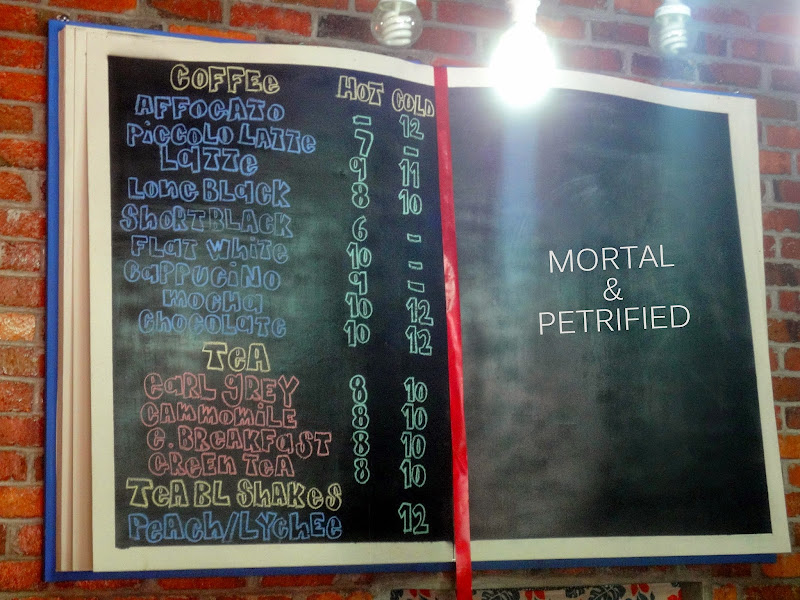 COFFEE HOT COLD
AFFOGATO - 12
PICCOLO LATTE 7 -
LATTE 9 11
LONG BLACK 8 10
SHORT BLACK 6 -
FLAT WHITE 10 -
CAPPUCINO 9 -
MOCHA 10 12
CHOCOLATE 10 12
TEA
EARL GREY 8 10
CAMMOMILE 8 10
E. BREAKFAST 8 10
GREEN TEA 8 10
TEA BL SHAKES
PEACH/LYCHEE 12
MORTAL
&
PETRIFIED